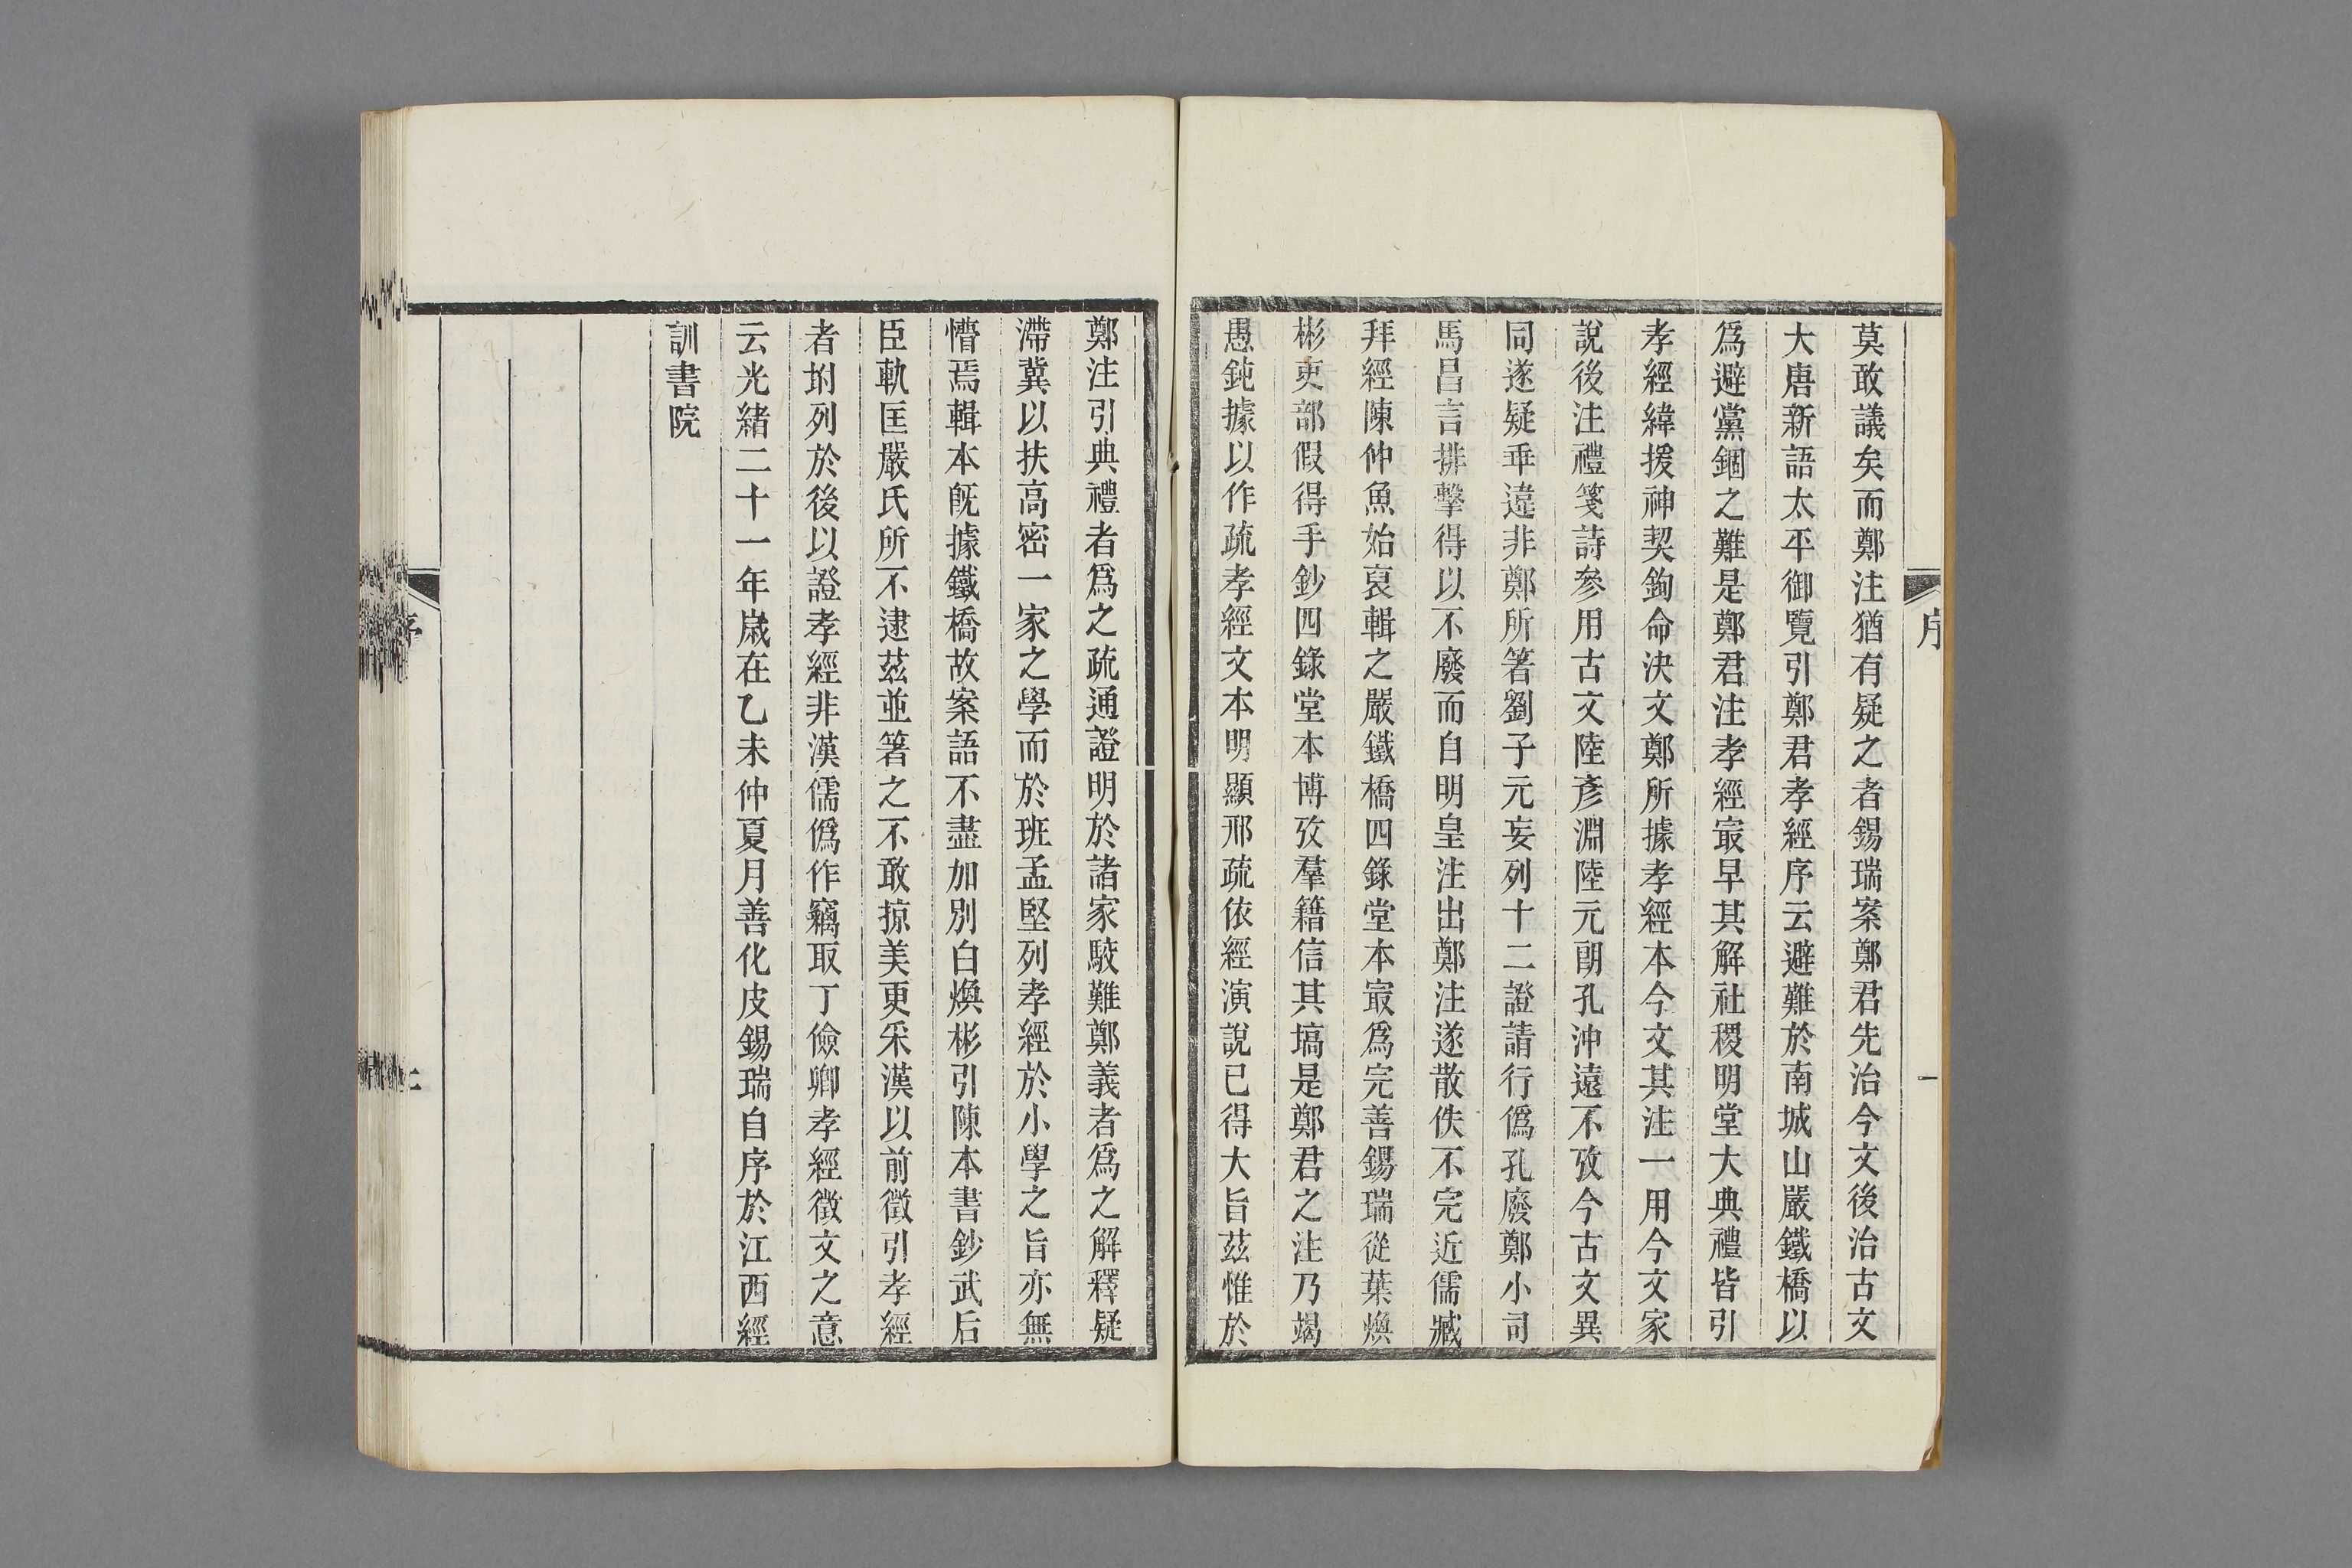 序
一
莫敢議矣而鄭注猶有疑之者錫瑞案鄭君先治今文後治古文
大唐新語太平御覽引鄭君孝經序云避難於南城山嚴鐵橋以
爲避黨錮之難是鄭君注孝經㝡早其解社稷明堂大典禮皆引
孝經緯援神契鉤命決文鄭所據孝經本今文其注一用今文家
說後注禮箋詩參用古文陸彥淵陸元朗孔沖遠不攷今古文異
同遂疑乖違非鄭所箸劉子元妄列十二證請行僞孔廢鄭小司
馬昌言排擊得以不廢而自明皇注出鄭注遂散佚不完近儒臧
拜經陳仲魚始裒輯之嚴鐵橋四錄堂本㝡爲完善錫瑞從葉煥
彬吏部假得手鈔四錄堂本博攷羣籍信其塙是鄭君之注乃竭
愚鈍據以作疏孝經文本明顯邢疏依經演說已得大旨茲惟於
鄭注引典禮者爲之疏通證明於諸家駮難鄭義者爲之解釋疑
滯冀以扶高密一家之學而於班孟堅列孝經於小學之旨亦無
懵焉輯本旣據鐵橋故案語不盡加別白煥彬引陳本書鈔武后
臣軌匡嚴氏所不逮茲並箸之不敢掠美更采漢以前徵引孝經
者坿列於後以證孝經非漢儒僞作竊取丁儉卿孝經徵文之意
云光緒二十一年歲在乙未仲夏月善化皮錫瑞自序於江西經
訓書院
序
二